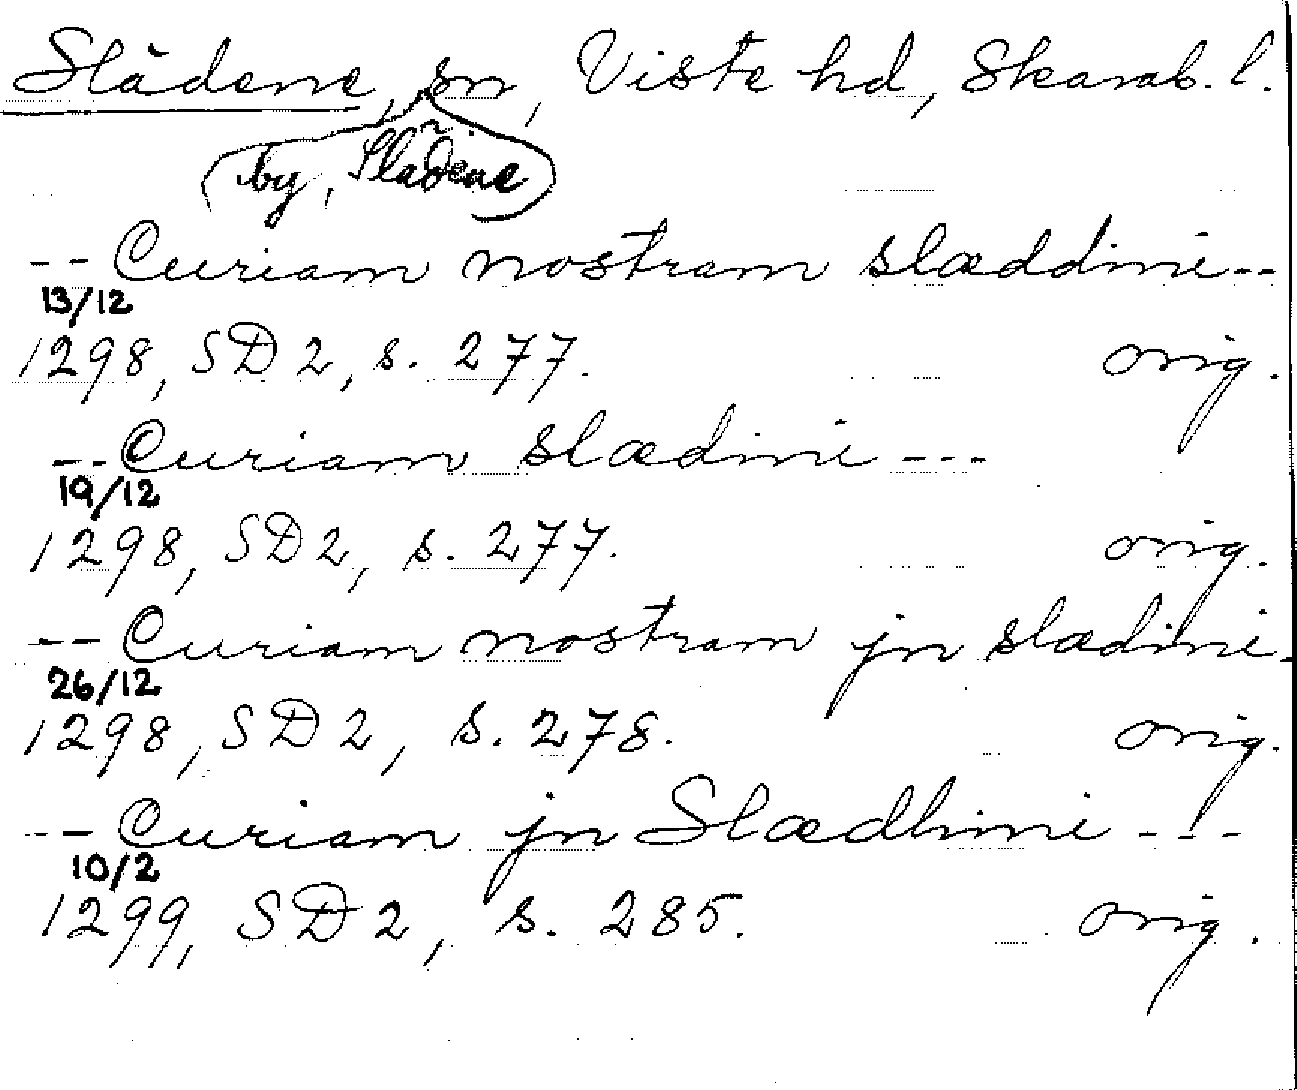 Slädene, sn, Viste hd, Skarab. l.
(by, Slädene)
-- Curiam nostram slæddini --
13/12
1298, SD 2, s. 277. orig.
-- Curiam slædini ---
19/12
1298, SD 2, s. 277. orig.
-- Curiam nostram jn slædini.
26/12
1298, SD 2, s. 278. orig.
-- Curiam jn Slædhini ---
10/2
1299, SD 2, s. 285. orig.